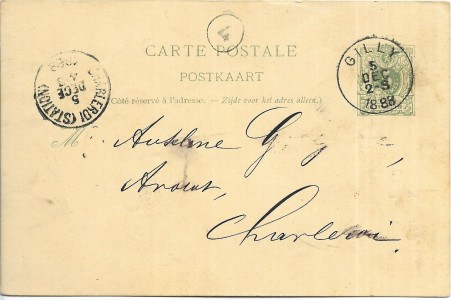 4
CARTE POSTALE
POSTKAART
(Côté réservé à l'adresse. — Zijde voor het adres alleen.)
GILLY
5
DEC
2-S
1888
CHARLEROI (STATION)
5
DECE
M
Anselme
Avocat,
Charleroi